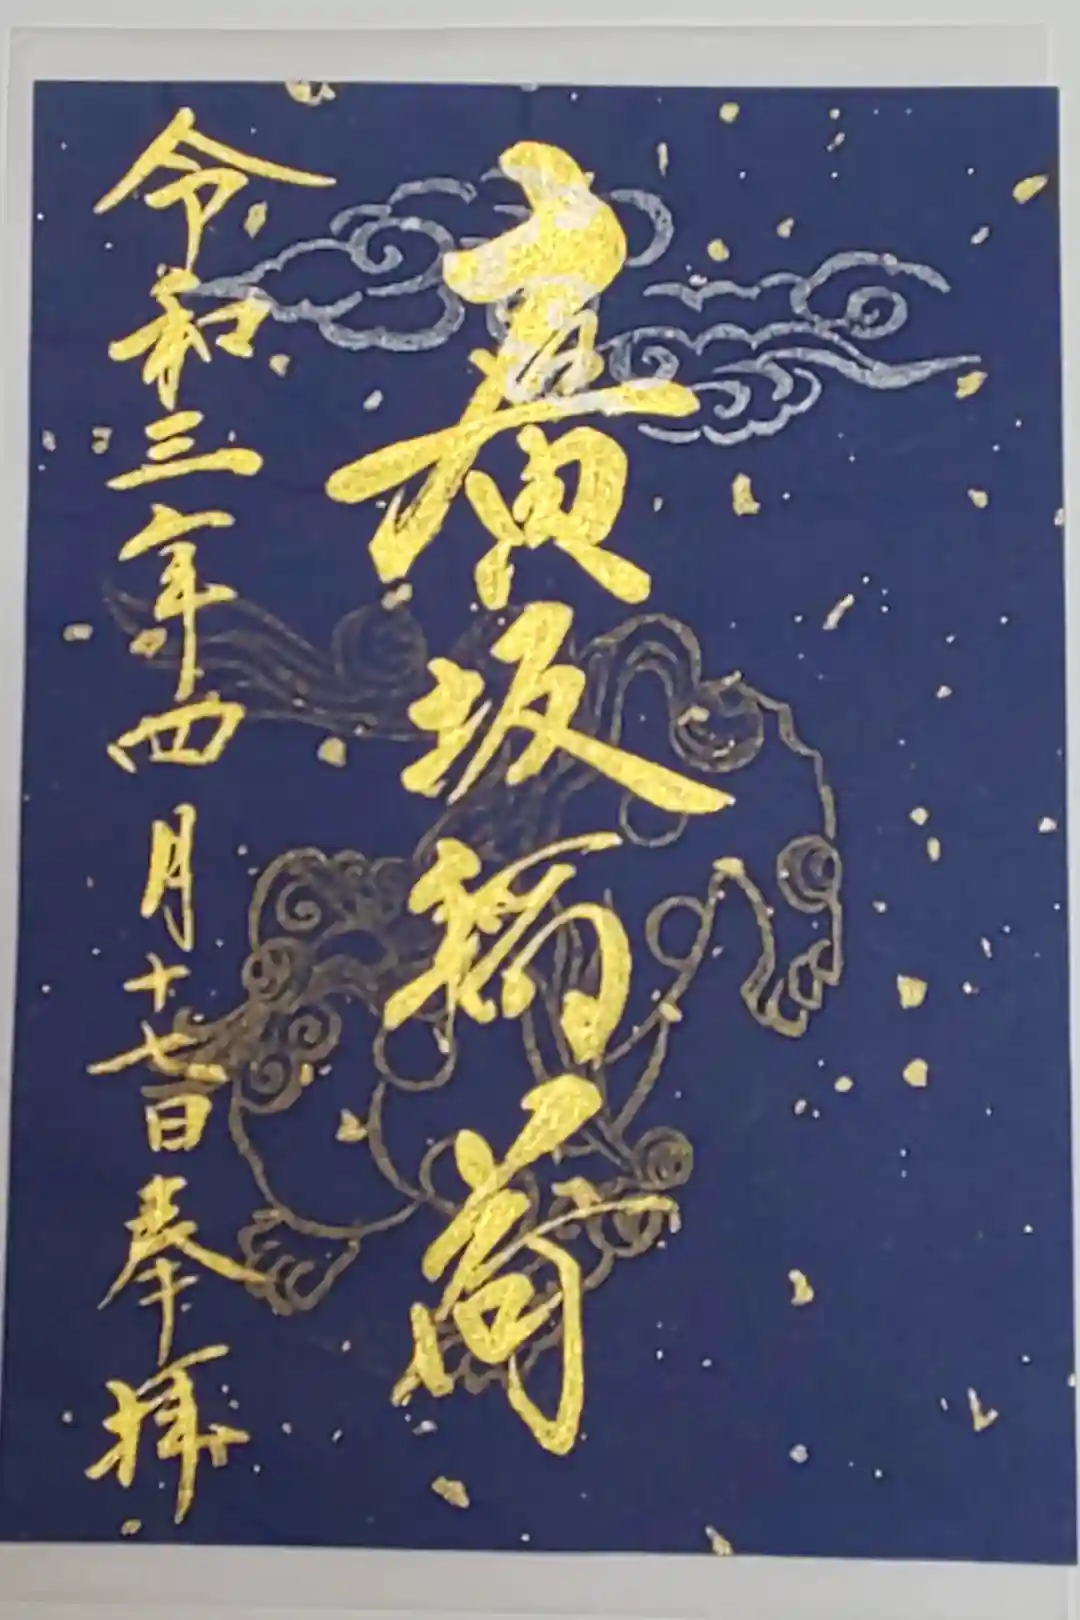 廣坂稲荷
令和三年四月十七日奉拝